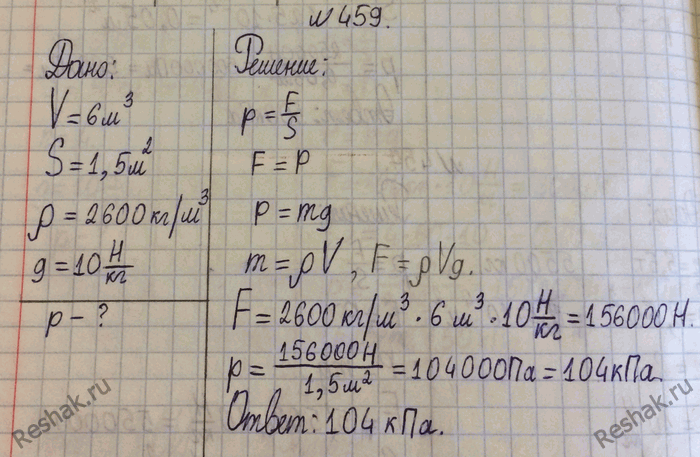 №459.
Дано:
V = 6 м³
S = 1,5 м²
ρ = 2600 кг/м³
g = 10 Н/кг
p – ?
Решение:
p = F/S
F = P
P = mg
m = ρV, F = ρVg.
F = 2600 кг/м³ · 6 м³ · 10 Н/кг = 156000 Н.
p = 156000 Н / 1,5 м² = 104000 Па = 104 кПа.
Ответ: 104 кПа.
Reshak.ru
Reshak.ru